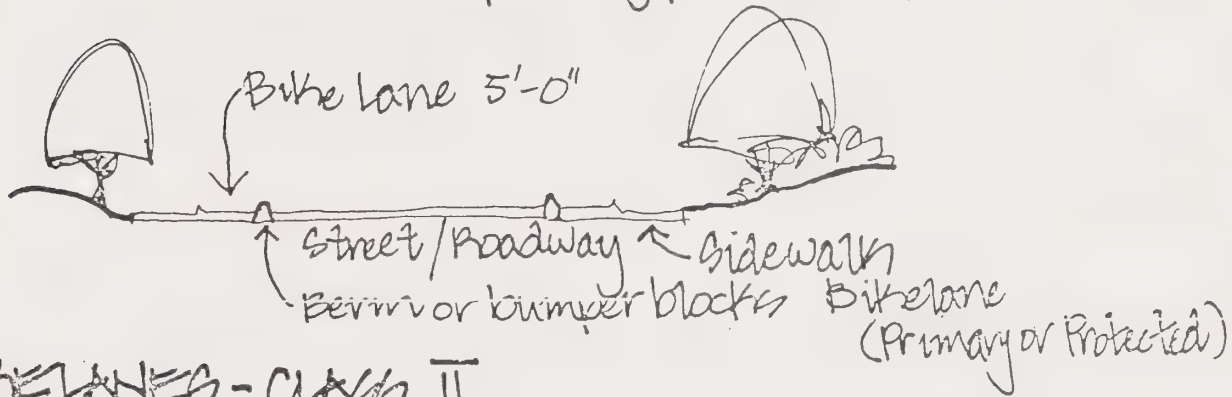 Bike lane 5'-0"
Street/Roadway
Sidewalk
Berm or bumper blocks
Bikelane
(Primary or Protected)
CLASS II